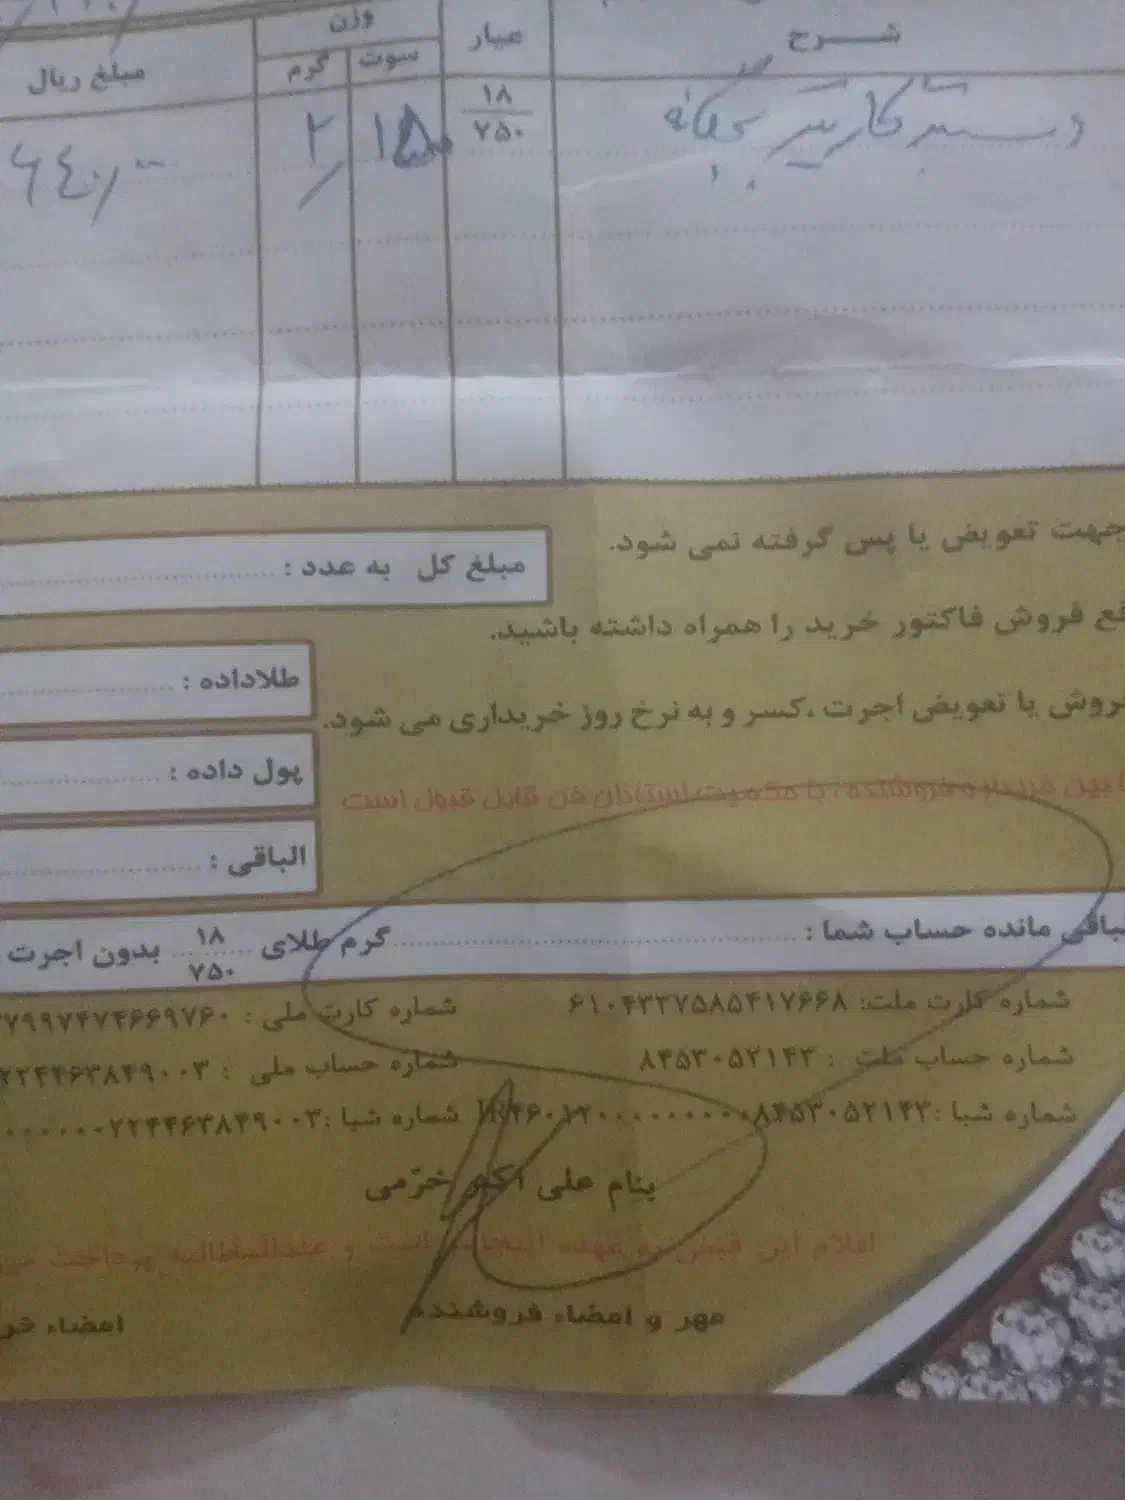 شرح
عیار
وزن
سوت
گرم
مبلغ ریال
دستبند کارتیر بچگانه
۱۸
۷۵۰
۱۵۰
۲
۶۴۰/۰۰
جهت تعویض یا پس گرفته نمی شود.
مبلغ کل به عدد :
فروش فاکتور خرید را همراه داشته باشید.
طلاداده :
فروش یا تعویض اجرت ،کسر و به نرخ روز خریداری می شود.
پول داده :
بین خریدار و فروشنده ، با حکمیت استادان فن قابل قبول است
الباقی :
الباقی مانده حساب شما : گرم طلای ۱۸/۷۵۰ بدون اجرت
شماره کارت ملت: ۶۱۰۴۳۳۷۵۸۵۴۱۷۶۶۸ شماره کارت ملی : ۷۹۹۷۴۷۴۶۶۹۷۶۰
شماره حساب ملت : ۸۴۵۳۰۵۲۱۴۳ شماره حساب ملی : ۲۲۴۴۶۳۸۴۹۰۰۳
شماره شبا : شماره شبا :
بنام علی اکبر خرّمی
اقلام این قبض به عهده اینجانب است و عندالمطالبه پرداخت
مهر و امضاء فروشنده امضاء